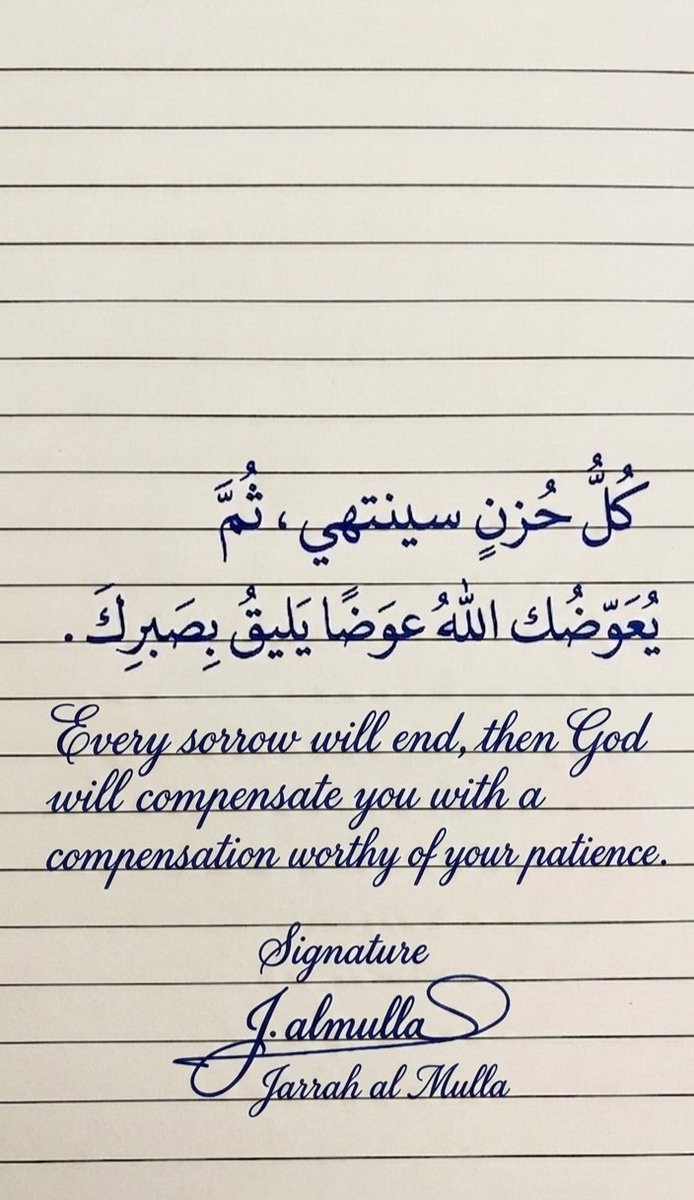 كُلُّ حُزنٍ سينتهي، ثُمَّ
يُعَوّضُك اللهُ عوَضًا يَليقُ بِصَبرِكَ.
Every sorrow will end, then God
will compensate you with a
compensation worthy of your patience.
Signature
J. almulla
Jarrah al Mulla